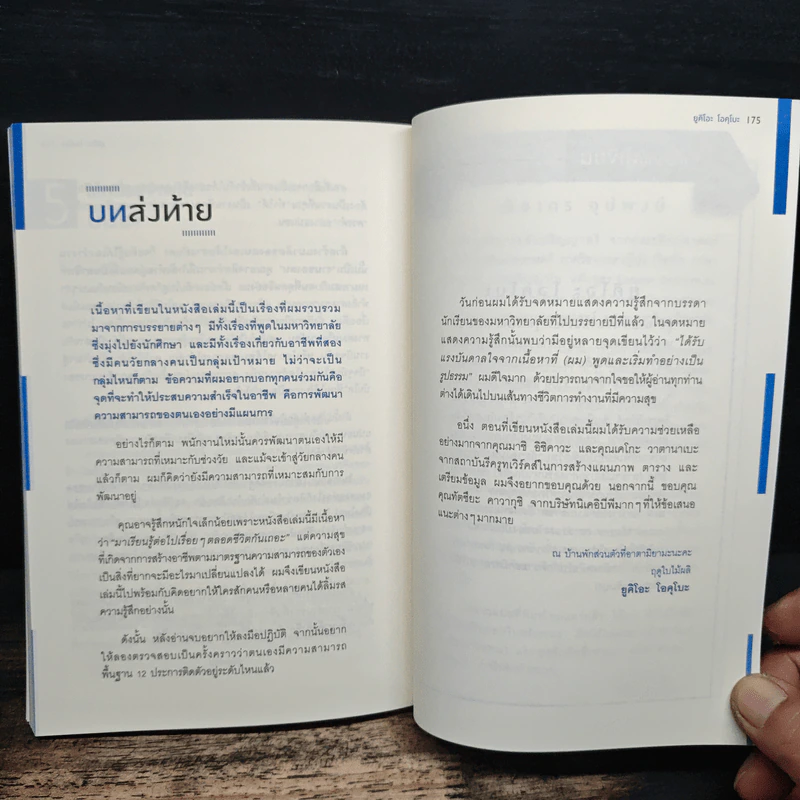 บทส่งท้าย
เนื้อหาที่เขียนในหนังสือเล่มนี้เป็นเรื่องที่ผมรวบรวม
มาจากการบรรยายต่างๆ มีทั้งเรื่องที่พูดในมหาวิทยาลัย
ซึ่งมุ่งไปยังนักศึกษา และมีทั้งเรื่องเกี่ยวกับอาชีพที่สอง
ซึ่งมีคนวัยกลางคนเป็นกลุ่มเป้าหมาย ไม่ว่าจะเป็น
กลุ่มไหนก็ตาม ข้อความที่ผมอยากบอกทุกคนร่วมกันคือ
จุดที่จะทำให้ประสบความสำเร็จในอาชีพ คือการพัฒนา
ความสามารถของตนเองอย่างมีแผนการ
อย่างไรก็ตาม พนักงานใหม่นั้นควรพัฒนาตนเองให้มี
ความสามารถที่เหมาะกับช่วงวัย และแม้จะเข้าสู่วัยกลางคน
แล้วก็ตาม ผมก็คิดว่ายังมีความสามารถที่เหมาะสมกับการ
พัฒนาอยู่
คุณอาจรู้สึกหนักใจเล็กน้อยเพราะหนังสือเล่มนี้มีเนื้อหา
ว่า "มาเรียนรู้ต่อไปเรื่อยๆ ตลอดชีวิตกันเถอะ" แต่ความสุข
ที่เกิดจากการสร้างอาชีพตามมาตรฐานความสามารถของตัวเอง
เป็นสิ่งที่ยากจะมีอะไรมาเปลี่ยนแปลงได้ ผมจึงเขียนหนังสือ
เล่มนี้ไปพร้อมกับคิดอยากให้ใครสักคนหรือหลายคนได้ลิ้มรส
ความรู้สึกอย่างนั้น
ดังนั้น หลังอ่านจบอยากให้ลงมือปฏิบัติ จากนั้นอยาก
ให้ลองตรวจสอบเป็นครั้งคราวว่าตนเองมีความสามารถ
พื้นฐาน 12 ประการติดตัวอยู่ระดับไหนแล้ว
ยูคิโอะ โอคุโบะ 175
วันก่อนผมได้รับจดหมายแสดงความรู้สึกจากบรรดา
นักเรียนของมหาวิทยาลัยที่ไปบรรยายปีที่แล้ว ในจดหมาย
แสดงความรู้สึกนั้นพบว่ามีอยู่หลายจุดเขียนไว้ว่า "ได้รับ
แรงบันดาลใจจากเนื้อหาที่ (ผม) พูดและเริ่มทำอย่างเป็น
รูปธรรม" ผมดีใจมาก ด้วยปรารถนาจากใจขอให้ผู้อ่านทุกท่าน
ต่างได้เดินไปบนเส้นทางชีวิตการทำงานที่มีความสุข
อนึ่ง ตอนที่เขียนหนังสือเล่มนี้ผมได้รับความช่วยเหลือ
อย่างมากจากคุณมาซิ อิชิคาวะ และคุณเคโกะ วาตานาเบะ
จากสถาบันรีครูทเวิร์คส์ในการสร้างแผนภาพ ตาราง และ
เตรียมข้อมูล ผมจึงอยากขอบคุณด้วย นอกจากนี้ ขอบคุณ
คุณทัตซึยะ คาวากุชิ จากบริษัทนิเคอิบีพีมากๆ ที่ให้ข้อเสนอ
แนะต่างๆ มากมาย
ณ บ้านพักส่วนตัวที่อาตามิยามะนะคะ
ฤดูใบไม้ผลิ
ยูคิโอะ โอคุโบะ